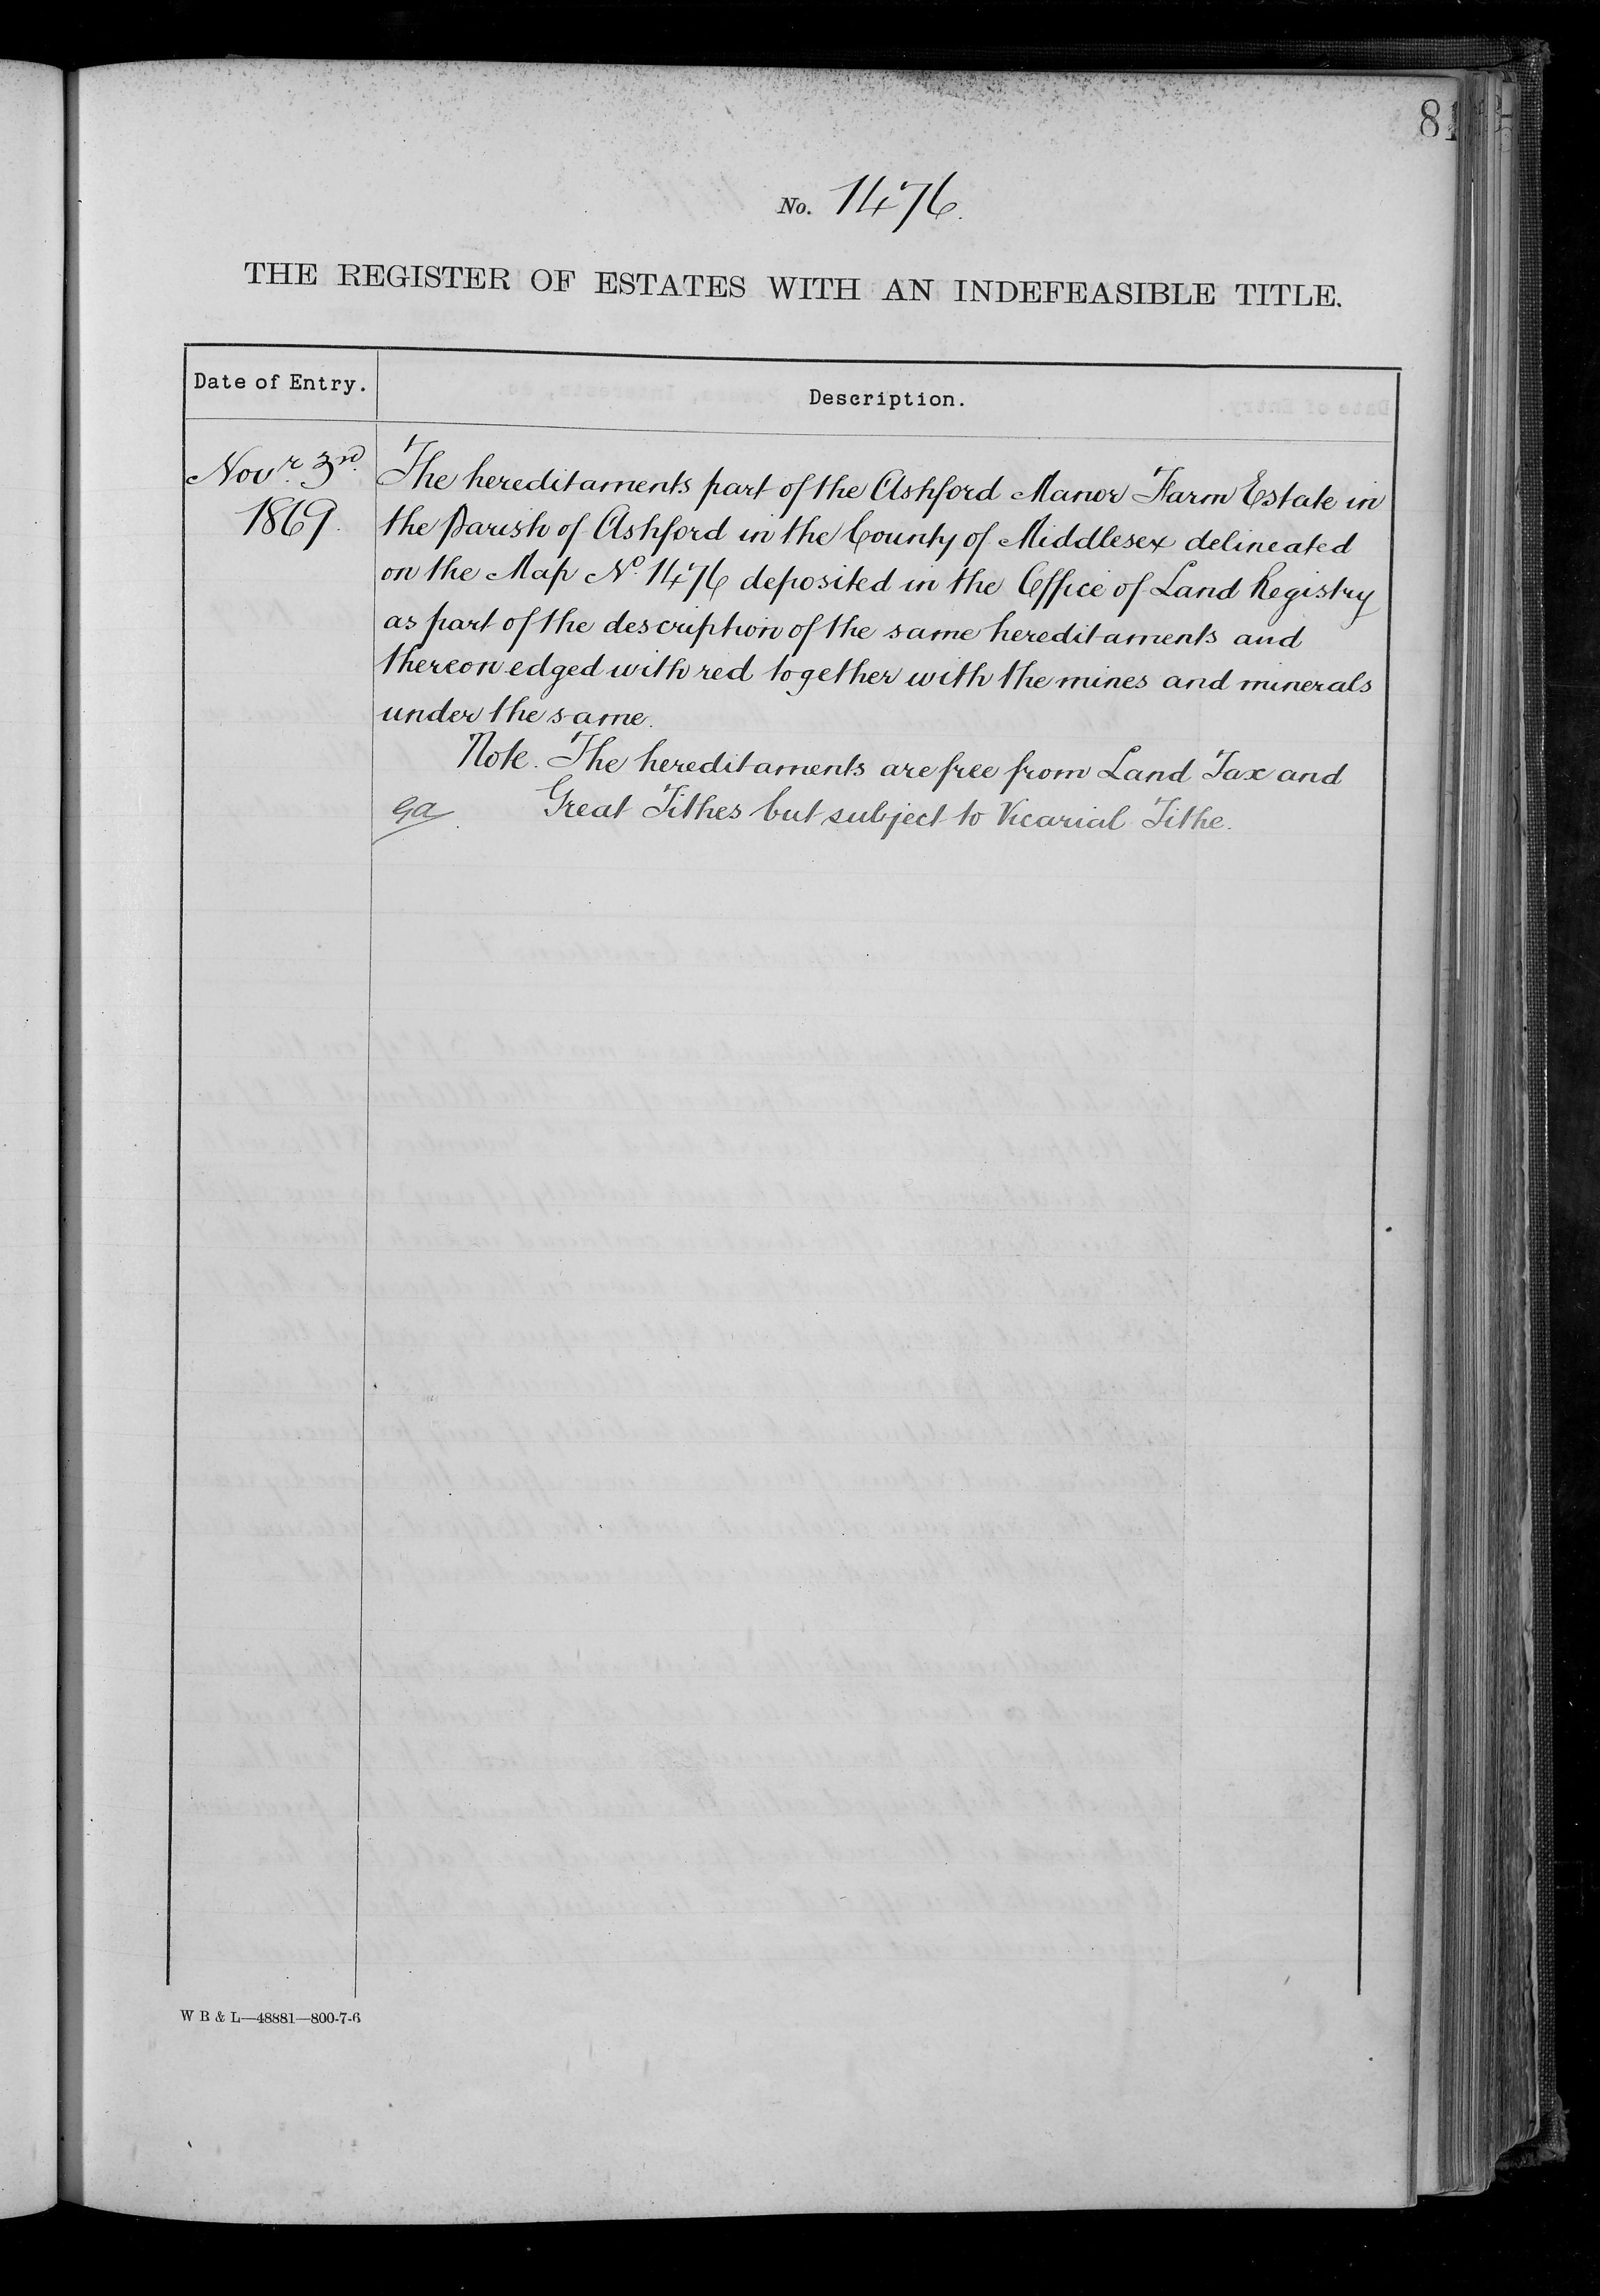 81
No. 1476.
THE REGISTER OF ESTATES WITH AN INDEFEASIBLE TITLE.
Date of Entry.
Description.
Novr. 3rd.
1869.
The hereditaments part of the Ashford Manor Farm Estate in
the Parish of Ashford in the County of Middlesex delineated
on the Map No. 1476 deposited in the Office of Land Registry
as part of the description of the same hereditaments and
thereon edged with red together with the mines and minerals
under the same.
Note. The hereditaments are free from Land Tax and
Great Tithes but subject to Vicarial Tithe.
W B & L—48881—800-7-6